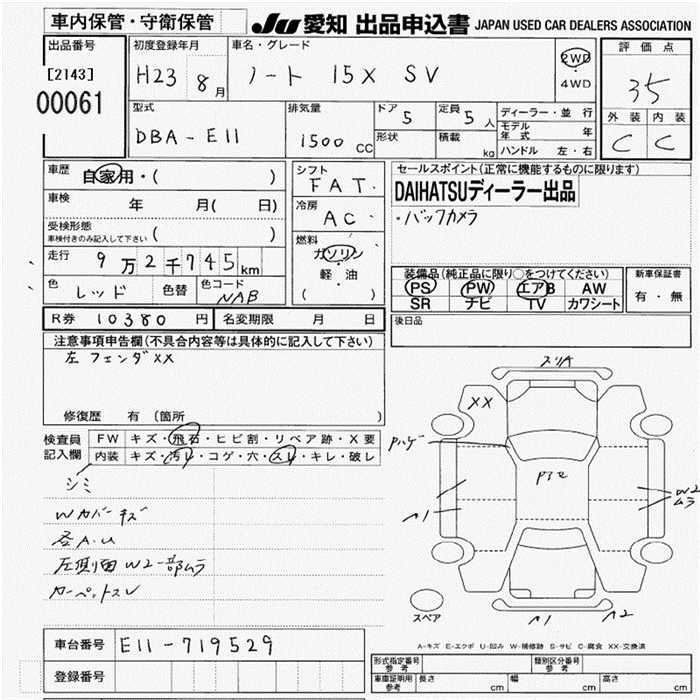 車内保管・守衛保管
JU 愛知 出品申込書 JAPAN USED CAR DEALERS ASSOCIATION
出品番号
[2143]
00061
初度登録年月
H23 8月
車名・グレード
ノート 15X SV
2WD
・
4WD
評価点
35
外装 内装
C C
型式
DBA-E11
排気量
1500 CC
ドア 5
形状
定員 5 人
積載 kg
ディーラー・並行
モデル年式 年
ハンドル 左・右
車歴 自家用・( )
車検 年 月( 日)
受検形態
車検付きのみ記入して下さい ( )
走行 9万2千745km
色 レッド 色替 色コード NAB
シフト
FAT.
冷房
AC
燃料
ガソリン
・
軽・油
( )
セールスポイント(正常に機能するものに限ります)
DAIHATSUディーラー出品
・バックカメラ
装備品(純正品に限り○をつけてください)
PS PW エアB AW
SR ナビ TV カワシート
新車保証書
有・無
R券 10380 円 名変期限 月 日
後日品
注意事項申告欄(不具合内容等は具体的に記入して下さい)
左 フェンダXX
修復歴 有 (箇所 )
検査員
記入欄
FW キズ・飛石・ヒビ割・リペア跡・X要
内装 キズ・汚レ・コゲ・穴・スレ・キレ・破レ
シミ
Wカバーキズ
各A.U
左側面W2一部ムラ
カーペットスレ
スリA
XX
Pハゲ
W2
ムラ
スペア
A-キズ E-エクボ U-凹み W-補修跡 S-サビ C-腐食 XX-交換済
車台番号 E11-719529
登録番号
形式指定番号
参考
類別区分番号
参考
車庫証明用
参考
長さ cm 幅 cm 高さ cm